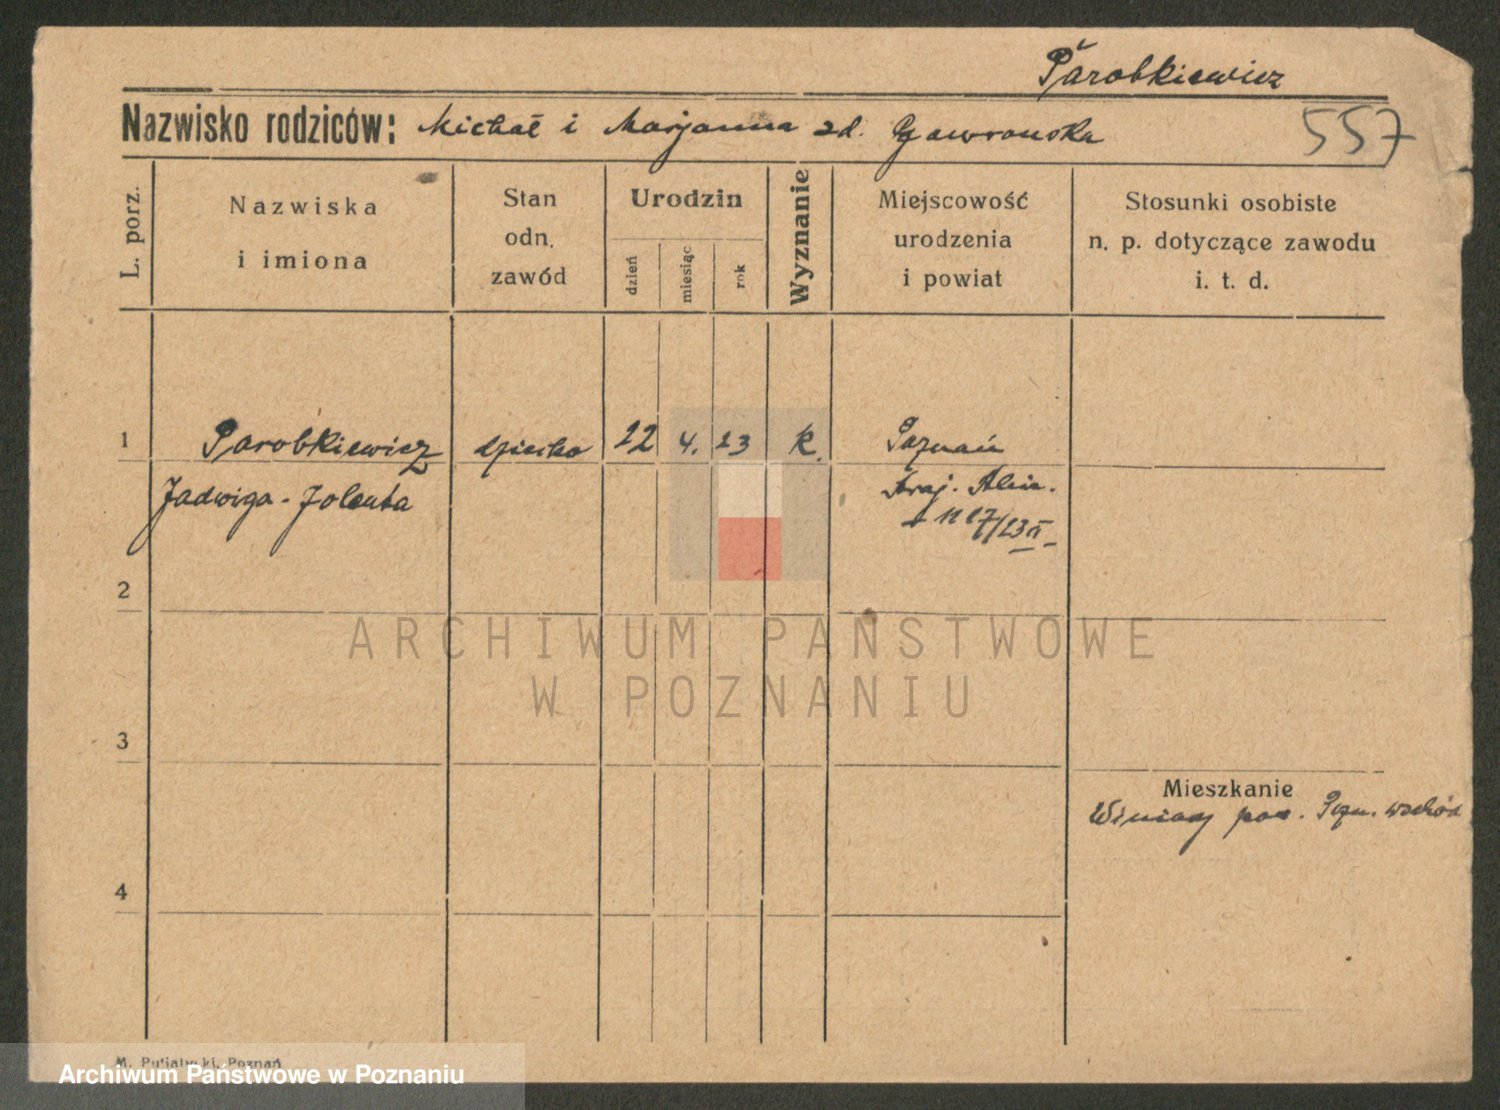 Parobkiewicz
Nazwisko rodziców: Michał i Marjanna zd. Gawrońska
557
L. porz.
Nazwiska
i imiona
Stan
odn.
zawód
Urodzin
dzień
miesiąc
rok
Wyznanie
Miejscowość
urodzenia
i powiat
Stosunki osobiste
n. p. dotyczące zawodu
i. t. d.
1 Parobkiewicz dziecko 22 4. 23 k. Poznań
Jadwiga - Jolenta
Kraj. Klin.
2
ARCHIWUM PAŃSTWOWE
W POZNANIU
3
Mieszkanie
Winiary pow. Pozn. wschód
4
M. Putiatycki, Poznań
Archiwum Państwowe w Poznaniu